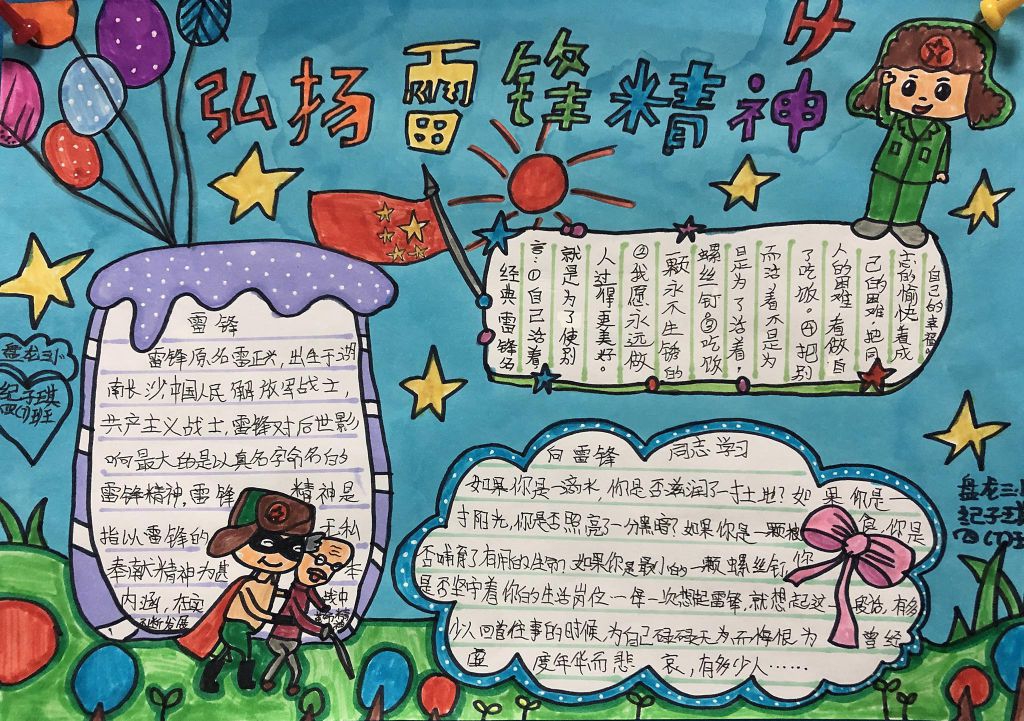 弘扬雷锋精神
盘龙三小
纪子琪
四(1)班
雷锋
雷锋原名雷正兴,出生于湖
南长沙,中国人民解放军战士,
共产主义战士,雷锋对后世影
响最大的是以真名字命名的
雷锋精神,雷锋精神是
指以雷锋的无私
奉献精神为基本
内涵,在实践中
不断发展
经典雷锋名
言:①自己活着
就是为了使别
人过得更美好。
②我愿永远做
一颗永不生锈的
螺丝钉③吃饭
是为了活着,
而活着不是为
了吃饭。④把别
人的困难看做自
己的困难,把同
志的愉快看成
自己的幸福。
向雷锋同志学习
如果你是一滴水,你是否滋润了一寸土地?如果你是一
寸阳光,你是否照亮了一分黑暗?如果你是一颗粮食,你是
否哺育了有用的生命,如果你是最小的一颗螺丝钉,你
是否坚守着你的生活岗位一年一次想起雷锋,就想起这一段话,有多
少人回首往事的时候,为自己碌碌无为而悔恨为曾经
虚度年华而悲哀,有多少人……
盘龙三小
纪子琪
四(1)班